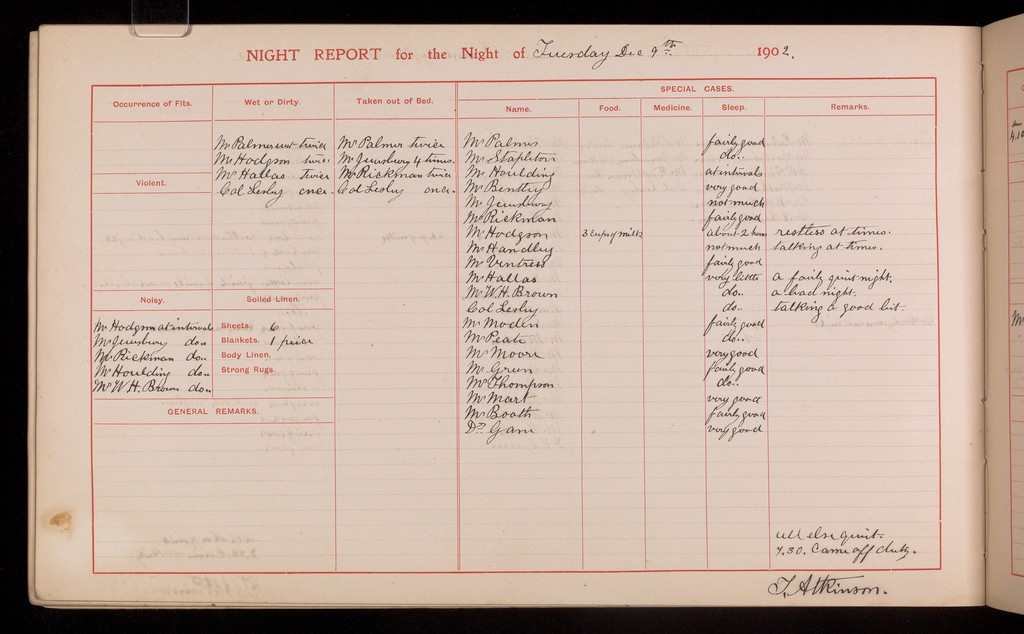 NIGHT REPORT for the Night of Tuesday Dec 9th 1902.
Occurrence of Fits.
Wet or Dirty.
Mr Palmer wet twice
Mr Hodgson twice
Mr Hallas twice
Col Lesly once.
Taken out of Bed.
Mr Palmer twice
Mr Jewsbury 4 times.
Mr Rickman twice
Col Lesly once.
Violent.
Noisy.
Mr Hodgson at intervals
Mr Jewsbury do..
Mr Rickman do..
Mr Houlding do..
Mr W.H. Brown do..
Soiled Linen.
Sheets. 6
Blankets. 1 piece
Body Linen.
Strong Rugs.
GENERAL REMARKS.
SPECIAL CASES.
Name. Food. Medicine. Sleep. Remarks.
Mr Palmer fairly good
Mr Stapleton do..
Mr Houlding at intervals
Mr Bentley very good
Mr Jewsbury not much
Mr Rickman fairly good
Mr Hodgson 3 cups of milk about 2 hours restless at times.
Mr Handley not much talking at times.
Mr Ventress fairly good
Mr Hallas very little a fairly quiet night.
Mr W.H. Brown do.. a bad night.
Col Lesly do.. talking a good bit.
Mr Moden fairly good
Mr Peate do..
Mr Moore very good
Mr Green fairly good
Mr Thompson do..
Mr Mart very good
Mr Booth fairly good
Dr Gane very good
all else quiet.
7.30. Came off duty.
T. Atkinson.